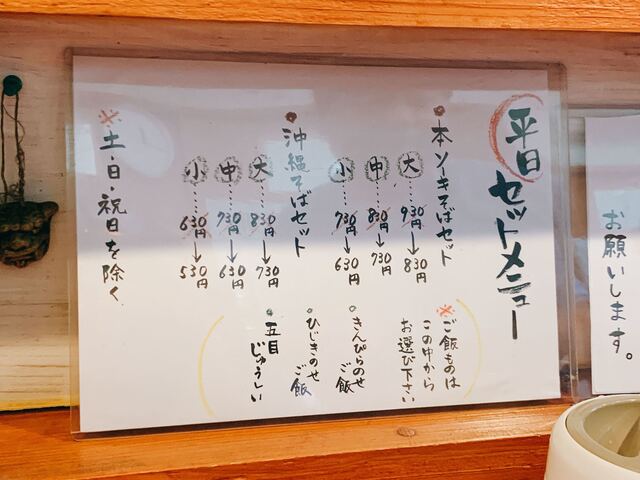 平日セットメニュー
本ソーキそばセット
大……930円→830円
中……830円→730円
小……730円→630円
※ご飯ものは
この中から
お選び下さい
きんぴらのせ
ご飯
ひじきのせ
ご飯
五目
じゅうしい
沖縄そばセット
大……830円→730円
中……730円→630円
小……630円→530円
※土・日・祝日を除く
お願いします。